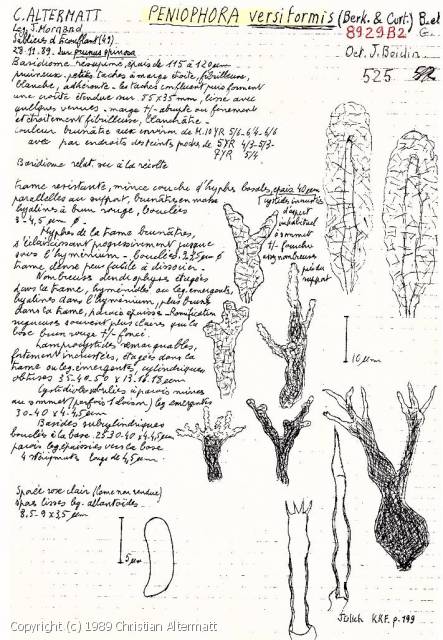 C. ALTERMATT
PENIOPHORA versiformis (Berk. & Curt.) B. et
Leg. J. Mornand
8929B2 Gal
Sablières d'Ecouflant (49)
Oct. J. Boidin
28.11.89. Sur prunus spinosa
525
Basidiome résupiné, épais de 115 à 120µm
pruineux. petites taches à marge étroite, fibrilleuse,
blanche, adhérente. les taches confluent puis forment
une croûte étendue sur 55x35mm, lisse avec
quelques verrues. marge +/- abrupte ou finement
et étroitement fibrilleuse, blanchâtre.
Couleur brunâtre aux environ de M. 10YR 5/6-6/4-6/6
avec par endroits des teintes proches de 5YR 4/3-5/3-
7YR 5/4
Basidiome relat. vu à la récolte
trame résistante, mince couche d'hyphes basales, épaix 40µm
parallèles au support, brunâtres en masse
hyalines à brun rouge, bouclées
3-4,5µm Ø.
Cystides incrustées
d'aspect
inhabituel
à sommet
+/- fourchu
assez nombreuses
près du
support
Hyphes de la trame brunâtres,
s'éclaircissant progressivement jusque
vers l'hyménium. bouclées 2-3,5µm Ø
trame dense peu facile à dissocier.
Nombreuses dendrophyses étagées
dans la trame, hyméniales ou leg. émergentes,
hyalines dans l'hyménium, plus brunes
dans la trame, parois épaisse. Ramification
rugueuses souvent plus claires que la
base brun rouge +/- foncé.
Lamprocystides remarquables,
fortement incrustées, étagées dans la
trame ou leg. émergentes, cylindriques
obtuses 35-40-50 x 13-16-18µm
10µm
Cystidioles subulées à parois minces
au sommet (parfois 1 cloison) leg émergentes
30-40 x 4-4,5µm
Basides subcylindriques
bouclées à la base. 25.30-40 x 4-4,5µm
parois leg. épaissies vers la base
4 stérigmates longs de 4,5µm
Sporée rose clair (lame non rendue)
spores lisses leg. allantoïdes
8,5-9 x 3,5µm
5µm
Jülich KKF. p. 199
Copyright (c) 1989 Christian Altermatt